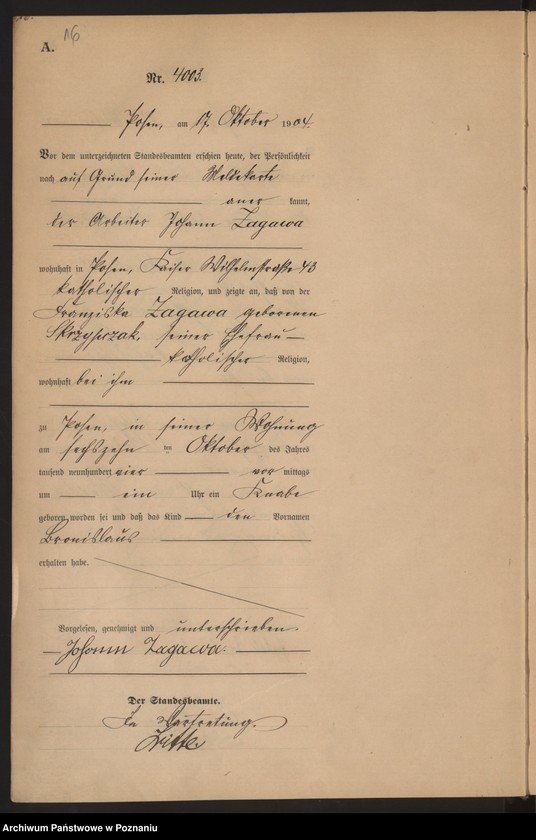 16
A.
Nr. 4003.
Posen, am 17. Oktober 1904.
Vor dem unterzeichneten Standesbeamten erschien heute, der Persönlichkeit
nach auf Grund seiner Meldekarte
aner kannt,
der Arbeiter Johann Zagawa
wohnhaft in Posen, Kaiser Wilhelmstraße 43
katholischer Religion, und zeigte an, daß von der
Franziska Zagawa geborenen
Skrzypczak, seiner Ehefrau
katholischer Religion,
wohnhaft bei ihm
zu Posen, in seiner Wohnung
am sechszehn ten Oktober des Jahres
tausend neunhundert vier vor mittags
um ein Uhr ein Knabe
geboren worden sei und daß das Kind den Vornamen
Bronislaus
erhalten habe.
Vorgelesen, genehmigt und unterschrieben
Johann Zagawa.
Der Standesbeamte.
In Vertretung.
Archiwum Państwowe w Poznaniu